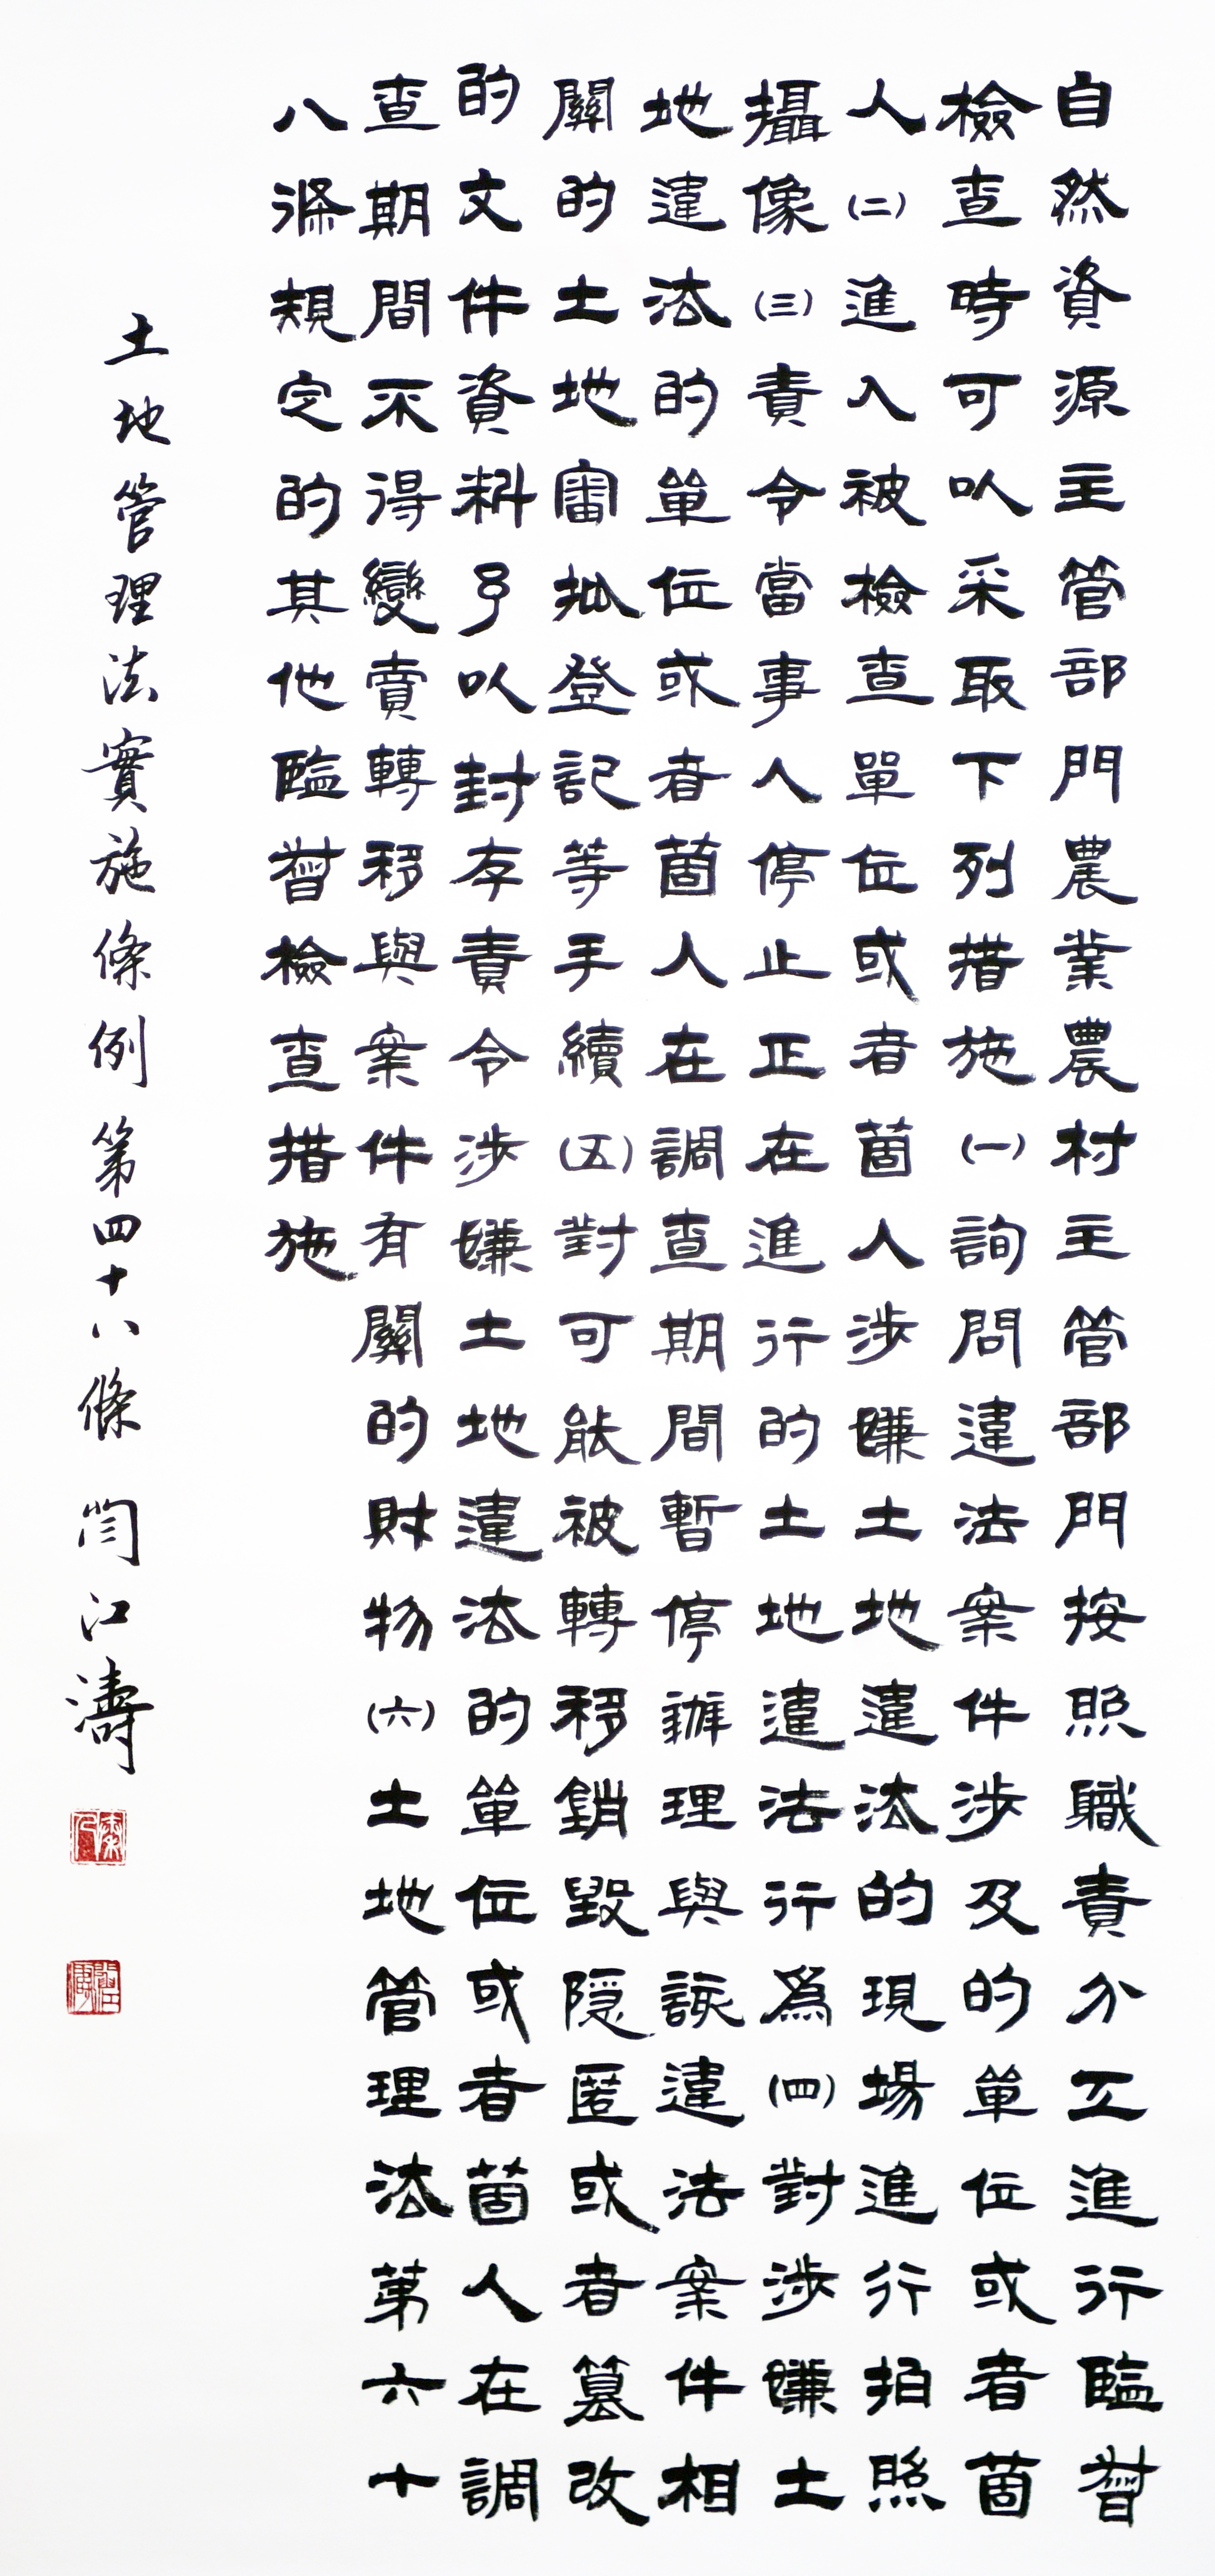 自然資源主管部門農業農村主管部門按照職責分工進行監督
檢查時可以采取下列措施(一)詢問違法案件涉及的單位或者箇
人(二)進入被檢查單位或者箇人涉嫌土地違法的現場進行拍照
攝像(三)責令當事人停止正在進行的土地違法行為(四)對涉嫌土
地違法的單位或者箇人在調查期間暫停辦理與該違法案件相
關的土地審批登記等手續(五)對可能被轉移銷毀隱匿或者篡改
的文件資料予以封存責令涉嫌土地違法的單位或者箇人在調
查期間不得變賣轉移與案件有關的財物(六)土地管理法第六十
八條規定的其他監督檢查措施
土地管理法實施條例第四十八條 閆江濤